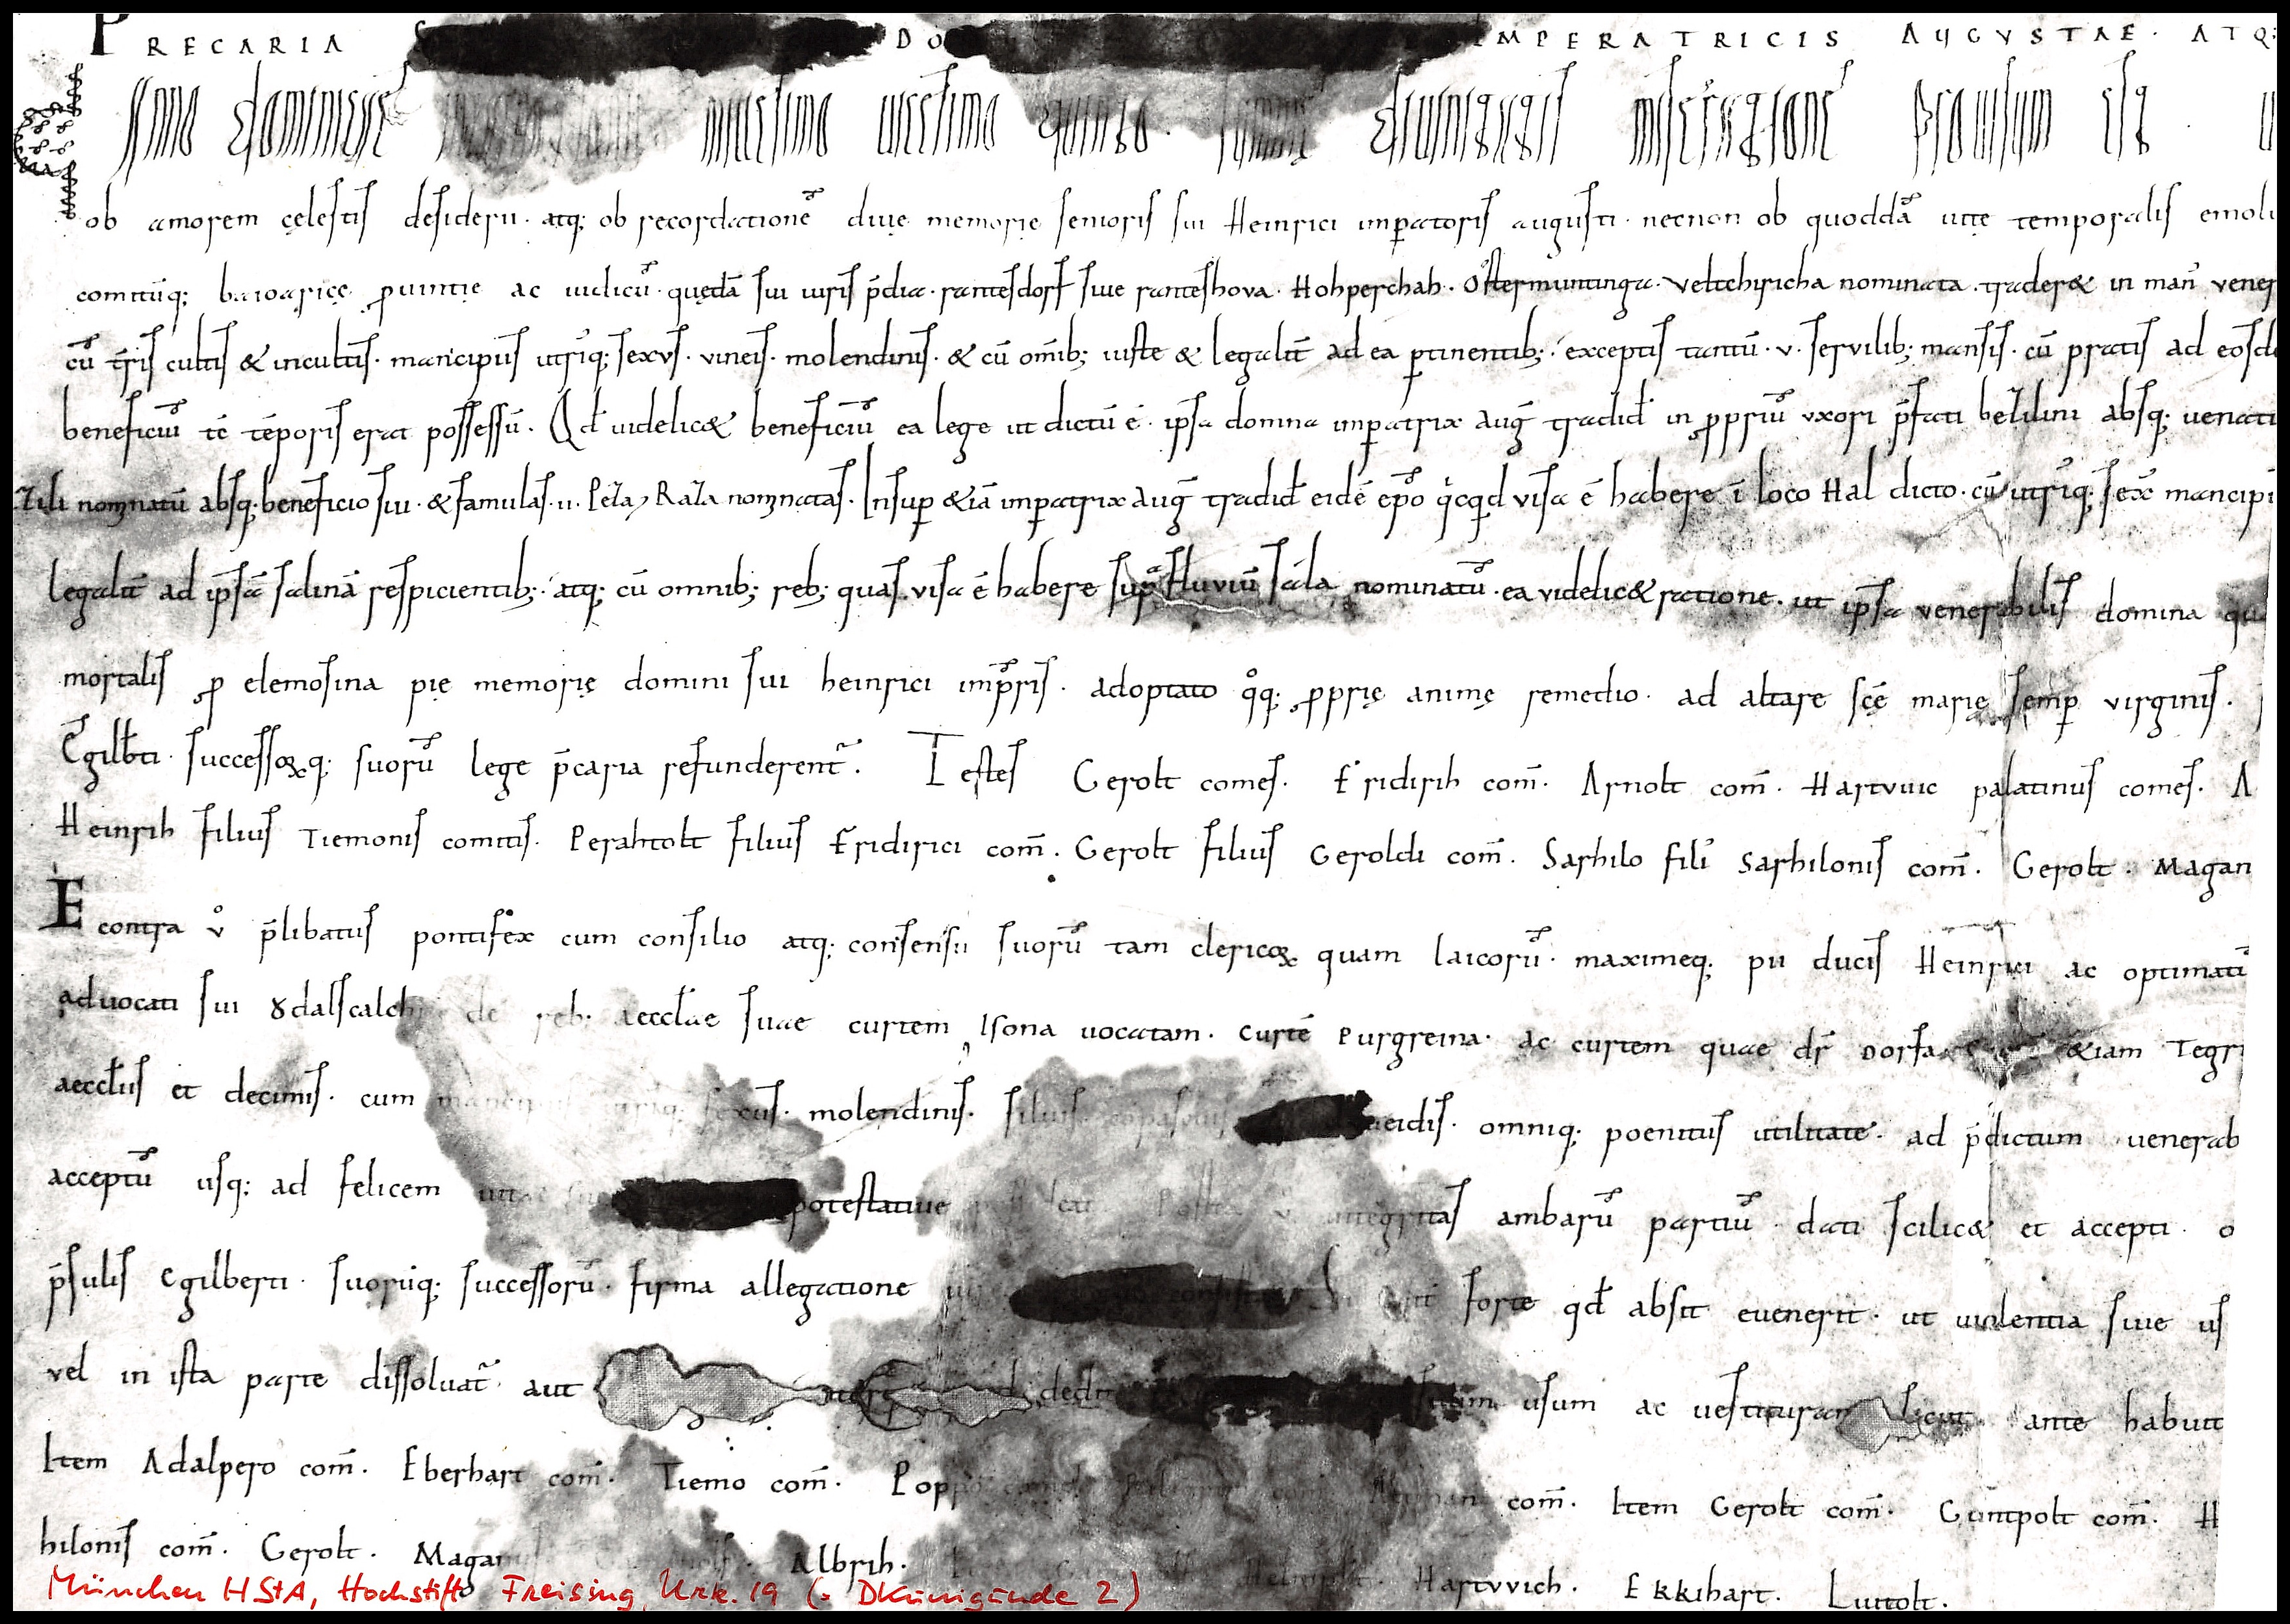 PRECARIA DO IMPERATRICIS AUGVSTAE · ATQ:
Anno dominicę millesimo uicesimo quinto · summę diuinitatis miseratione prouisum est ·
ob amorem cęlestis desiderii · atq; ob recordationē diuę memorię senioris sui Heinrici imp̄atoris augusti · necnon ob quoddā uitę temporalis emoli
comitūq; baioarięę ꝓuintię ac iudicū · quędā sui iuris p̄dia · rantesdorf siue ranteshova · Hohperchah · Ostermuntinga · Veltchiricha nominata · trader& in man̄ vener
cū t̄ris cultis & incultis · mancipiis utriq; sexus · vineis · molendinis · & cū om̄ib; iuste & legalit̄ ad ea ꝑtinentib; · exceptis tantū · v · servilib; mansis · cū pratis ad eosd
beneficiū tc̄ tēporis erat possessū · Qd̄ uidelic& beneficiū ea lege ut dictū ē · ipsa domna imꝑatrix auḡ tradid̄ in ꝓpriū uxori p̄fati bezilini absq; uenati
zili nominatū absq; beneficio sui · & famulas · ii · Peza, Raza nominatas · Insuꝑ &iā imꝑatrix auḡ tradid̄ eidē ep̄o qicqid visa ē habere ī loco Hal dicto · cū utriq; sex̄ mancipi
legalit̄ ad ip̄sā salinā respicientib; · atq; cū omnib; reb; quas visa ē habere sup̄ fluviū sala nominatū · ea videlic& ratione · ut ip̄sa venerabilis domina qu
mortalis ꝓ elemosina pię memorię domini sui heinrici imp̄ris · adoptato qoq; ꝓprię animę remedio · ad altare sc̄ę marię semꝑ virginis ·
Egilb̄ti · successoꝝq; suorū lege p̄caria refunderent̄ · Testes Gerolt comes · Fridirih com̄ · Arnolt com̄ · Hartvuic palatinus comes · A
Heinrih filius Tiemonis comitis · Perahtolt filius Fridirici com̄ · Gerolt filius Geroldi com̄ · Sarhilo fili' Sarhilonis com̄ · Gerolt · Magan
E contra v° p̄libatus pontifex cum consilio atq; consensu suorū tam clericoꝝ quam laicorū · maximeq; pii ducis Heinrici ac optimatū
advocati sui Ȣdalscalchi de reb; aeccl̄ae suae curtem Isona uocatam · curtē Purgreina · ac curtem quae dr̄ Dorfa &iam Tegr
aeccl̄iis et decimis · cum mancipiis utriq; sexus · molendinis · siluis · copascuis · ueidis · omniq; poenitus utilitate · ad p̄dictum venerab
acceptū usq; ad felicem uitae potestatiue Postea v integritas ambarū partiū · dati scilic& et accepti · o
p̄sulis Egilberti · suorūq; successorū · firma allegatione consistat Si aut forte qd̄ absit euenerit · ut uiolentia siue us
vel in ista parte dissoluat̄ · aut dedit usum ac uestituram sicut ante habuit
Item Adalpero com̄ · Eberhart com̄ · Tiemo com̄ · Poppo com̄ · com̄ · Item Gerolt com̄ · Guntpolt com̄ · H
hilonis com̄ · Gerolt · Maganus Albrih · Hartvvich · Ekkihart · Luitolt ·
München HStA, Hochstift Freising, Urk. 19 (= DKunigunde 2)